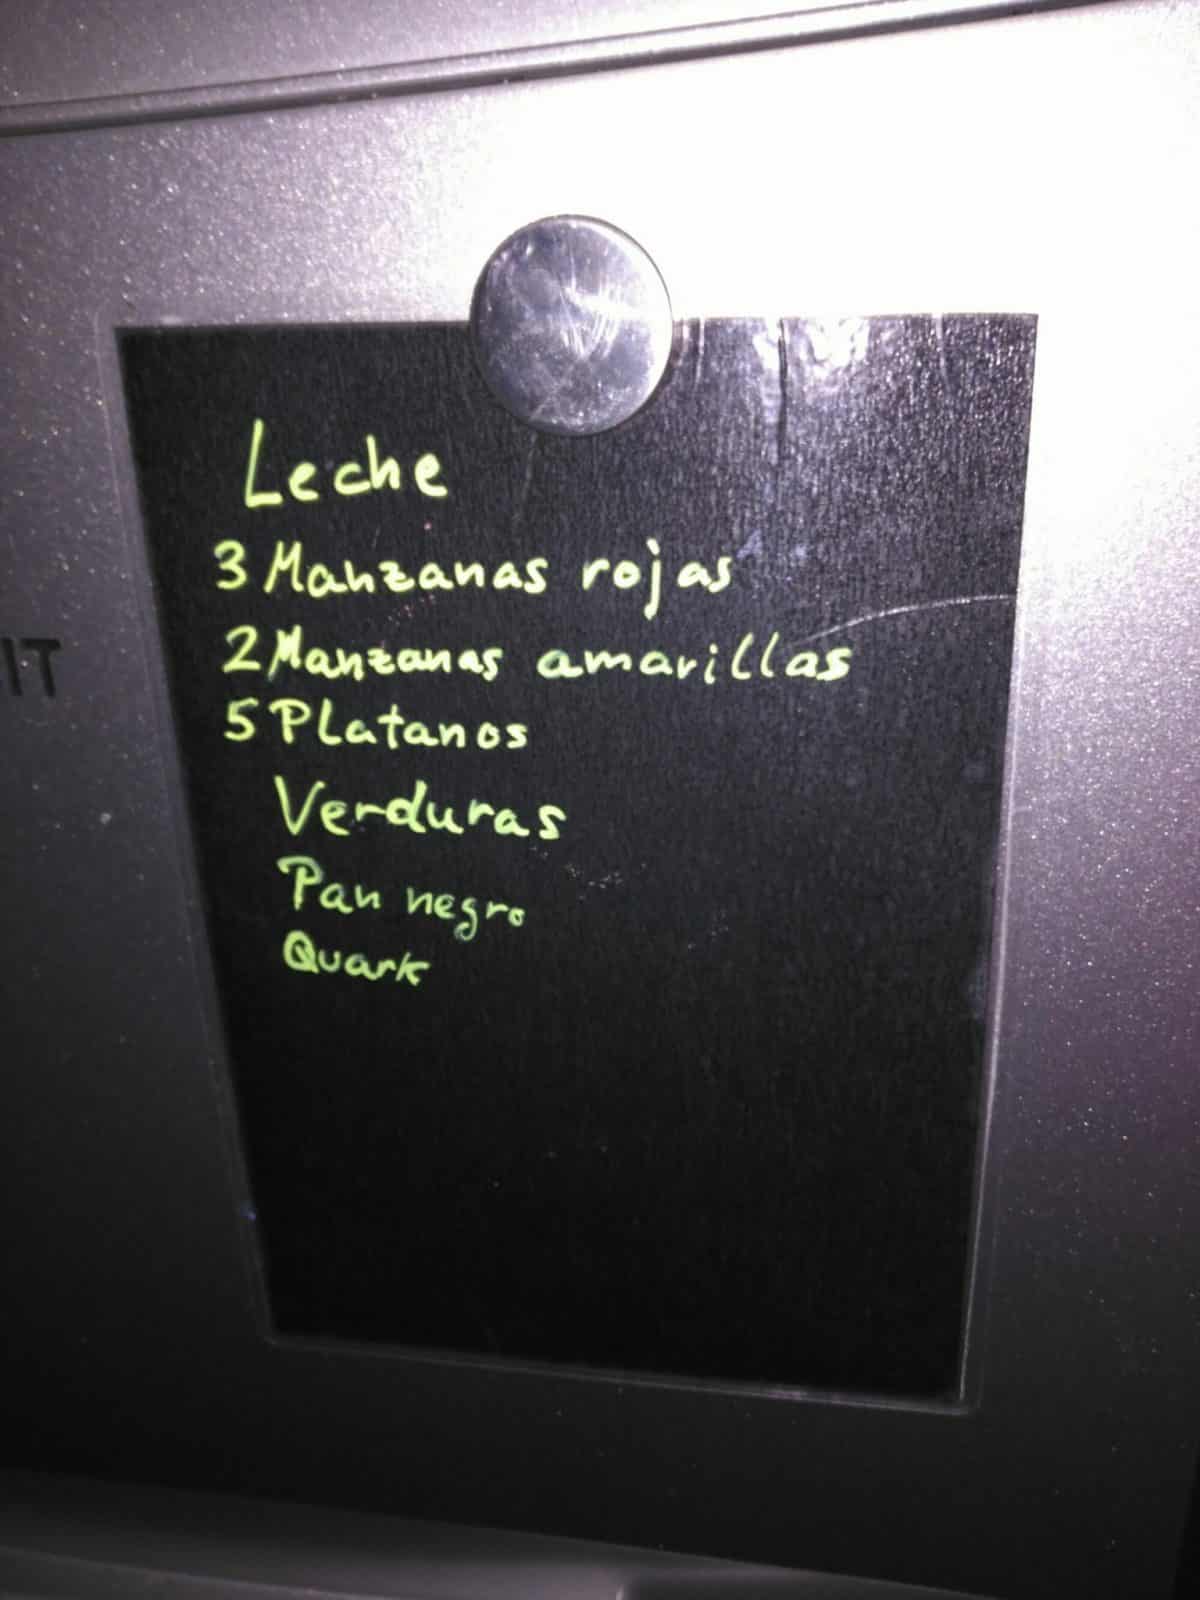 Leche
3 Manzanas rojas
2 Manzanas amarillas
5 Platanos
Verduras
Pan negro
Quark